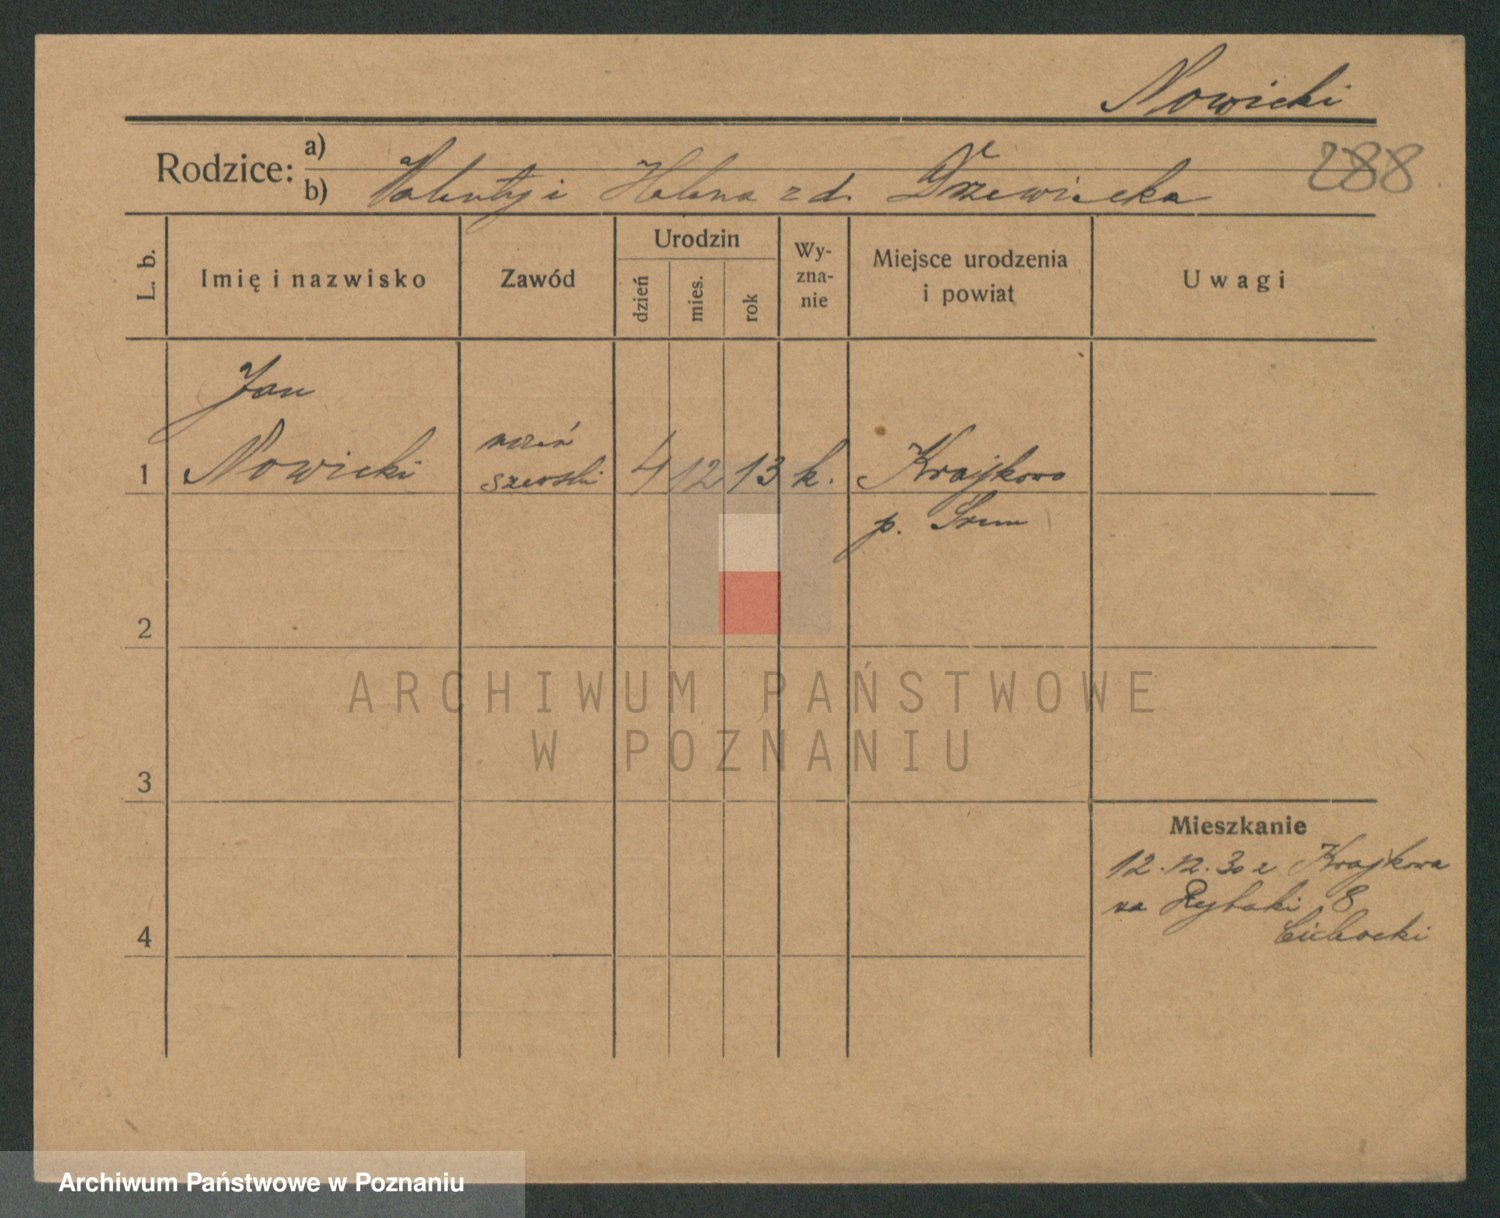 Nowicki
288
Rodzice:
a)
b) Walenty i Helena z d. Drzewiecka
L. b.
Imię i nazwisko
Zawód
Urodzin
dzień
mies.
rok
Wy-
zna-
nie
Miejsce urodzenia
i powiat
Uwagi
Jan
1 Nowicki
uczeń
szewski
4 12 13 k. Krajkowo
p. Śrem
2
3
4
Mieszkanie
12.12.30 z Krajkowa
na Rybaki 8
Cichocki
ARCHIWUM PAŃSTWOWE
W POZNANIU
Archiwum Państwowe w Poznaniu